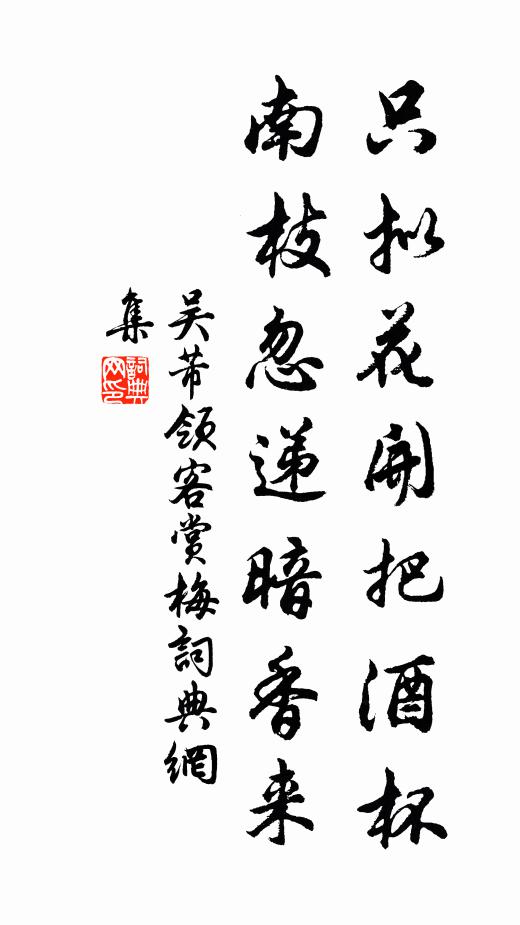 只拟花开把酒杯
南枝忽递暗香来
吴芾领客赏梅詞典網
集
詞典
网印